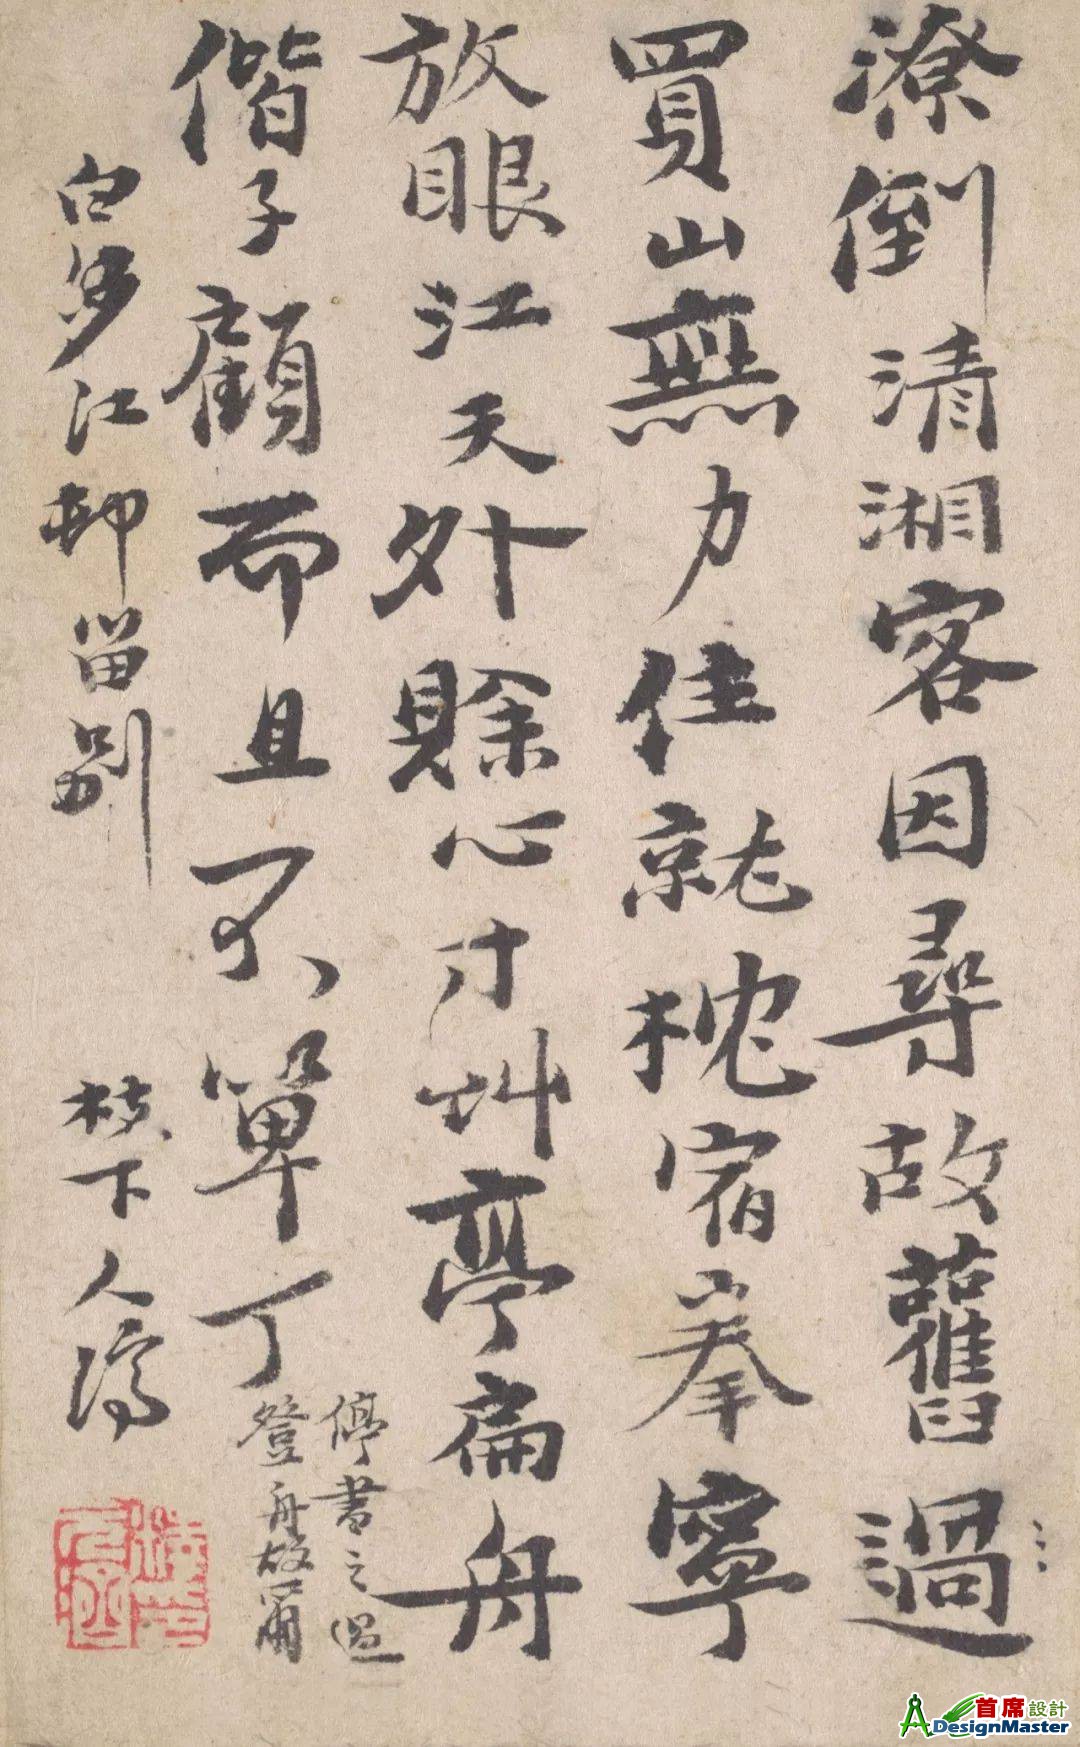 潦倒清湘客因尋故舊過
買山無力住就枕宿拳寧
放眼江天外賒心寸艸亭扁舟
偕子顧而且不單丁
停書之過
登舟故爾
白沙江邨留別 枝下人濟
首席設計
DesignMaster